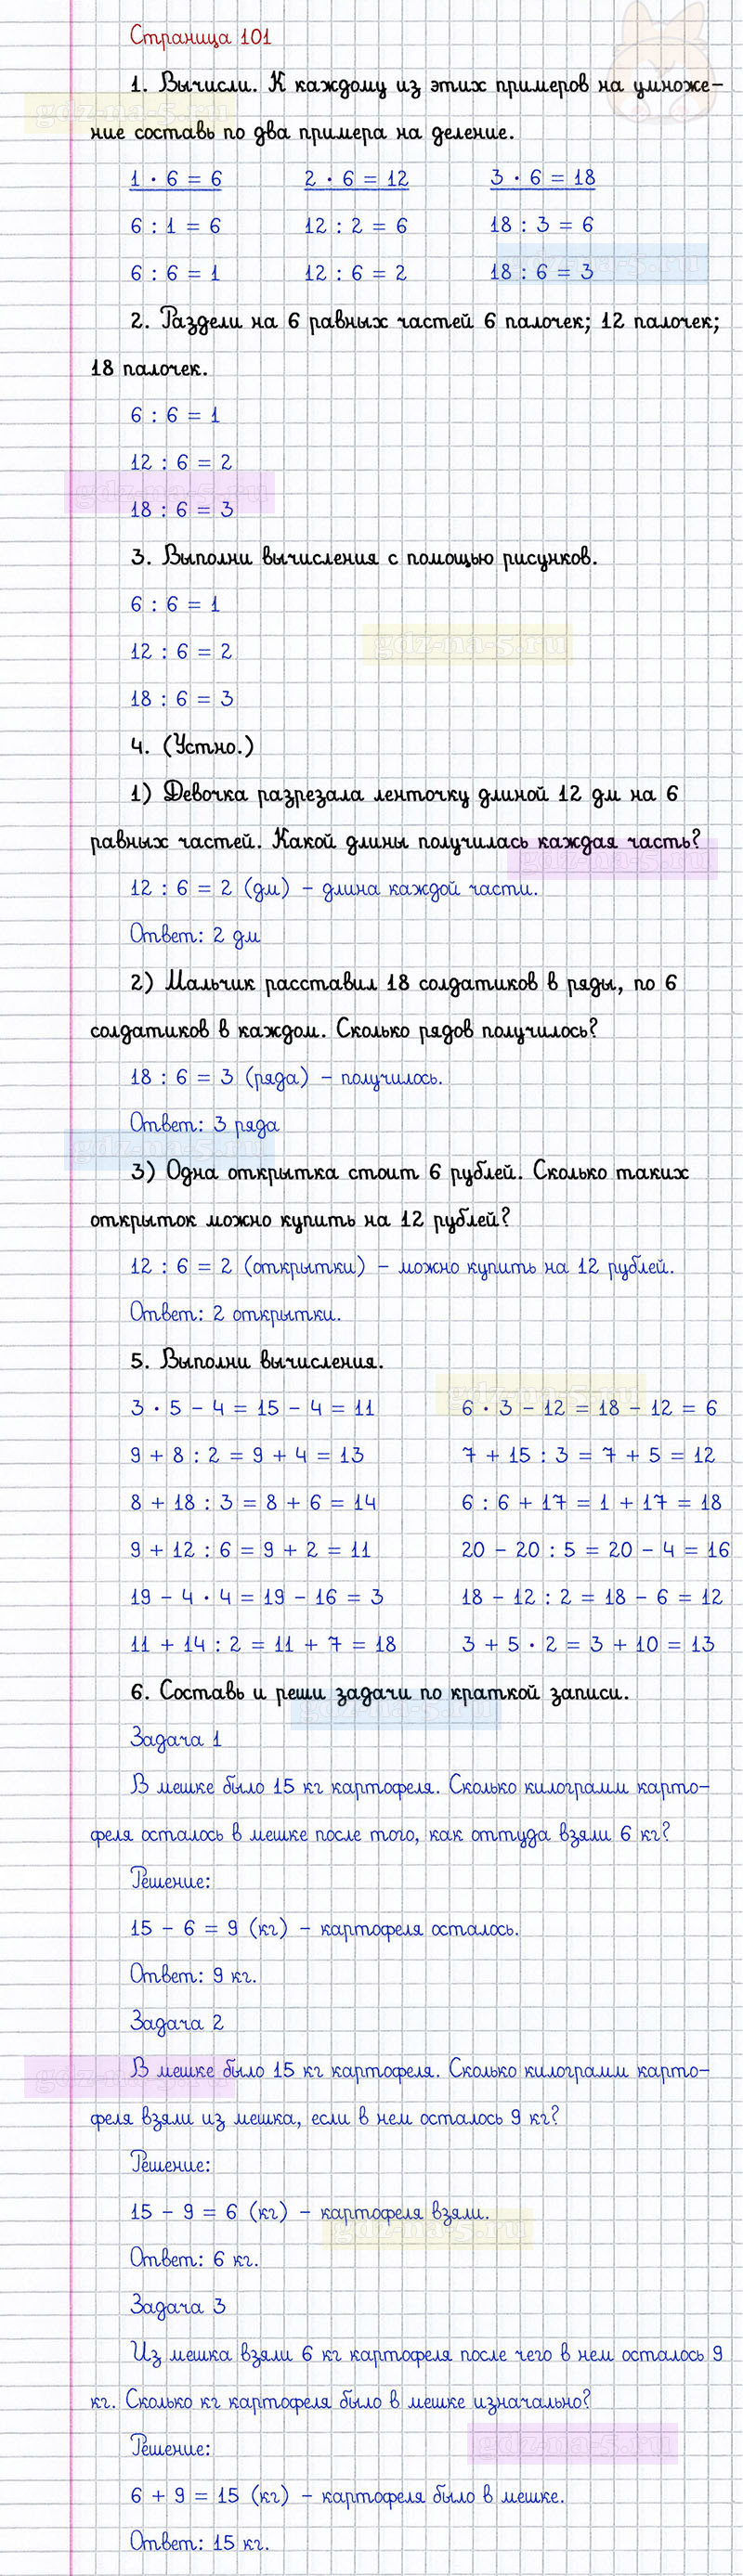 Страница 101
1. Вычисли. К каждому из этих примеров на умноже-
ние составь по два примера на деление.
1 · 6 = 6 2 · 6 = 12 3 · 6 = 18
6 : 1 = 6 12 : 2 = 6 18 : 3 = 6
6 : 6 = 1 12 : 6 = 2 18 : 6 = 3
2. Раздели на 6 равных частей 6 палочек; 12 палочек;
18 палочек.
6 : 6 = 1
12 : 6 = 2
18 : 6 = 3
3. Выполни вычисления с помощью рисунков.
6 : 6 = 1
12 : 6 = 2
18 : 6 = 3
4. (Устно.)
1) Девочка разрезала ленточку длиной 12 дм на 6
равных частей. Какой длины получилась каждая часть?
12 : 6 = 2 (дм) – длина каждой части.
Ответ: 2 дм
2) Мальчик расставил 18 солдатиков в ряды, по 6
солдатиков в каждом. Сколько рядов получилось?
18 : 6 = 3 (ряда) – получилось.
Ответ: 3 ряда
3) Одна открытка стоит 6 рублей. Сколько таких
открыток можно купить на 12 рублей?
12 : 6 = 2 (открытки) – можно купить на 12 рублей.
Ответ: 2 открытки.
5. Выполни вычисления.
3 · 5 – 4 = 15 – 4 = 11 6 · 3 – 12 = 18 – 12 = 6
9 + 8 : 2 = 9 + 4 = 13 7 + 15 : 3 = 7 + 5 = 12
8 + 18 : 3 = 8 + 6 = 14 6 : 6 + 17 = 1 + 17 = 18
9 + 12 : 6 = 9 + 2 = 11 20 – 20 : 5 = 20 – 4 = 16
19 – 4 · 4 = 19 – 16 = 3 18 – 12 : 2 = 18 – 6 = 12
11 + 14 : 2 = 11 + 7 = 18 3 + 5 · 2 = 3 + 10 = 13
6. Составь и реши задачи по краткой записи.
Задача 1
В мешке было 15 кг картофеля. Сколько килограмм карто-
феля осталось в мешке после того, как оттуда взяли 6 кг?
Решение:
15 – 6 = 9 (кг) – картофеля осталось.
Ответ: 9 кг.
Задача 2
В мешке было 15 кг картофеля. Сколько килограмм карто-
феля взяли из мешка, если в нем осталось 9 кг?
Решение:
15 – 9 = 6 (кг) – картофеля взяли.
Ответ: 6 кг.
Задача 3
Из мешка взяли 6 кг картофеля после чего в нем осталось 9
кг. Сколько кг картофеля было в мешке изначально?
Решение:
6 + 9 = 15 (кг) – картофеля было в мешке.
Ответ: 15 кг.